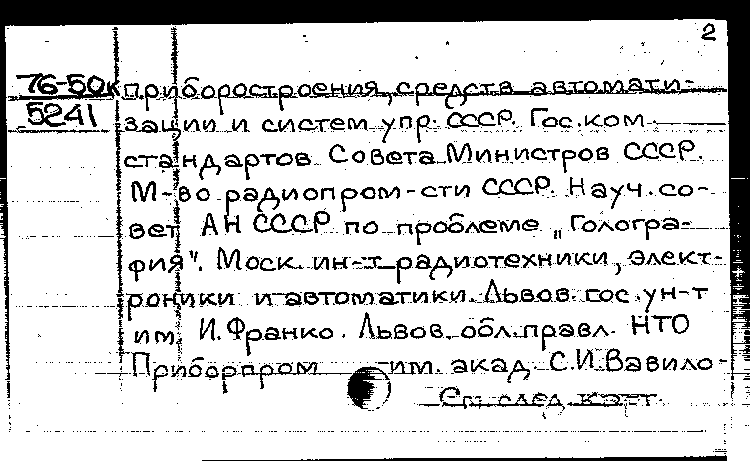 2
76-50к приборостроения, средств автомати-
5241 зации и систем упр. СССР. Гос. ком.
стандартов Совета Министров СССР.
М-во радиопром-сти СССР. Науч. со-
вет АН СССР по проблеме „Гологра-
фия". Моск. ин-т радиотехники, элект-
роники и автоматики. Львов. гос. ун-т
им. И. Франко. Львов. обл. правл. НТО
Приборпром им. акад. С.И. Вавило-
См. след. карт.